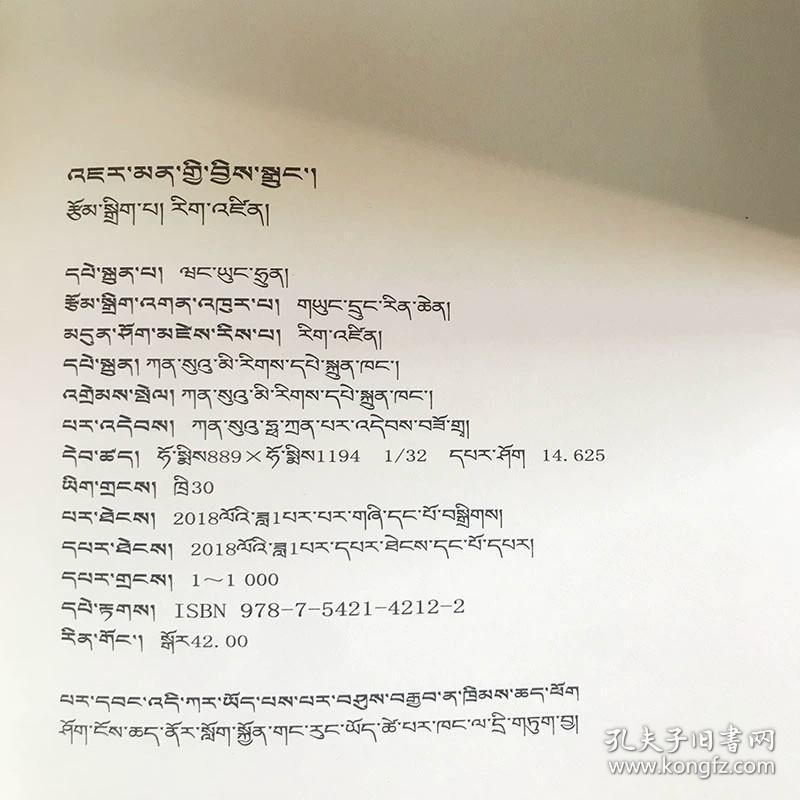 འཇར་མན་གྱི་བྱིས་སྒྲུང་།
རྩོམ་སྒྲིག་པ། རིག་འཛིན།
དཔེ་སྐྲུན་པ། ཝང་ཡུང་ཧྲུན།
རྩོམ་སྒྲིག་འགན་འཁུར་པ། གཡུང་དྲུང་རིན་ཆེན།
མདུན་ཤོག་མཛེས་རིས་པ། རིག་འཛིན།
དཔེ་སྐྲུན། ཀན་སུའུ་མི་རིགས་དཔེ་སྐྲུན་ཁང་།
འགྲེམས་སྤེལ། ཀན་སུའུ་མི་རིགས་དཔེ་སྐྲུན་ཁང་།
པར་འདེབས། ཀན་སུའུ་ཧྥ་ཀྲན་པར་འདེབས་བཟོ་གྲྭ།
དེབ་ཚད། ཧོ་སྨིས889×ཧོ་སྨིས1194 1/32 དཔར་ཤོག 14.625
ཡིག་གྲངས། ཁྲི30
པར་ཐེངས། 2018ལོའི་ཟླ1པར་པར་གཞི་དང་པོ་བསྒྲིགས།
དཔར་ཐེངས། 2018ལོའི་ཟླ1པར་དཔར་ཐེངས་དང་པོ་དཔར།
དཔར་གྲངས། 1～1 000
དཔེ་རྟགས། ISBN 978-7-5421-4212-2
རིན་གོང་། སྒོར42.00
པར་དབང་འདི་ཀར་ཡོད་པས་པར་བཤུས་བརྒྱབ་ན་ཁྲིམས་ཆད་ཕོག
ཤོག་ངོས་ཆད་ནོར་སློག་སྐྱོན་གང་རུང་ཡོད་ཚེ་པར་ཁང་ལ་དྲི་གཏུག་བྱ།
孔夫子旧书网
www.kongfz.com